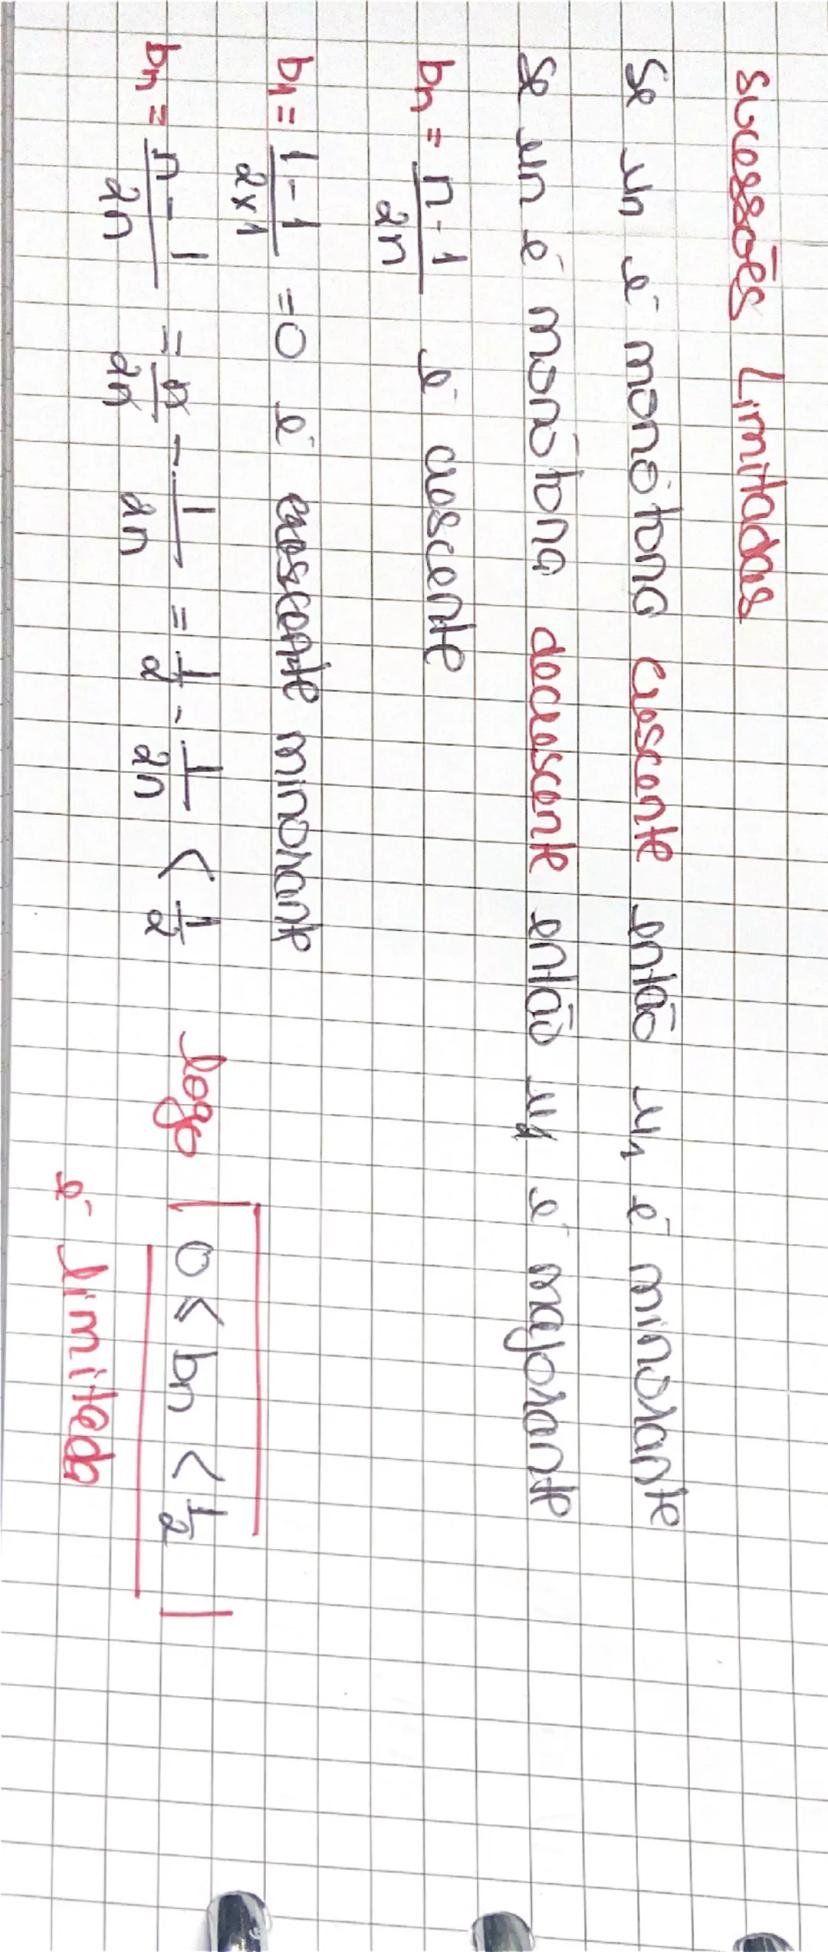 sucessões Limitadas
Se un é monótona crescente então u1 é minorante
Se un é monótona decrescente então u1 é majorante
bn = n-1/2n é crescente
b1 = 1-1/2×1 = 0 é minorante
bn = n-1/2n = n/2n - 1/2n = 1/2 - 1/2n < 1/2 logo 0 ≤ bn < 1/2
é limitada